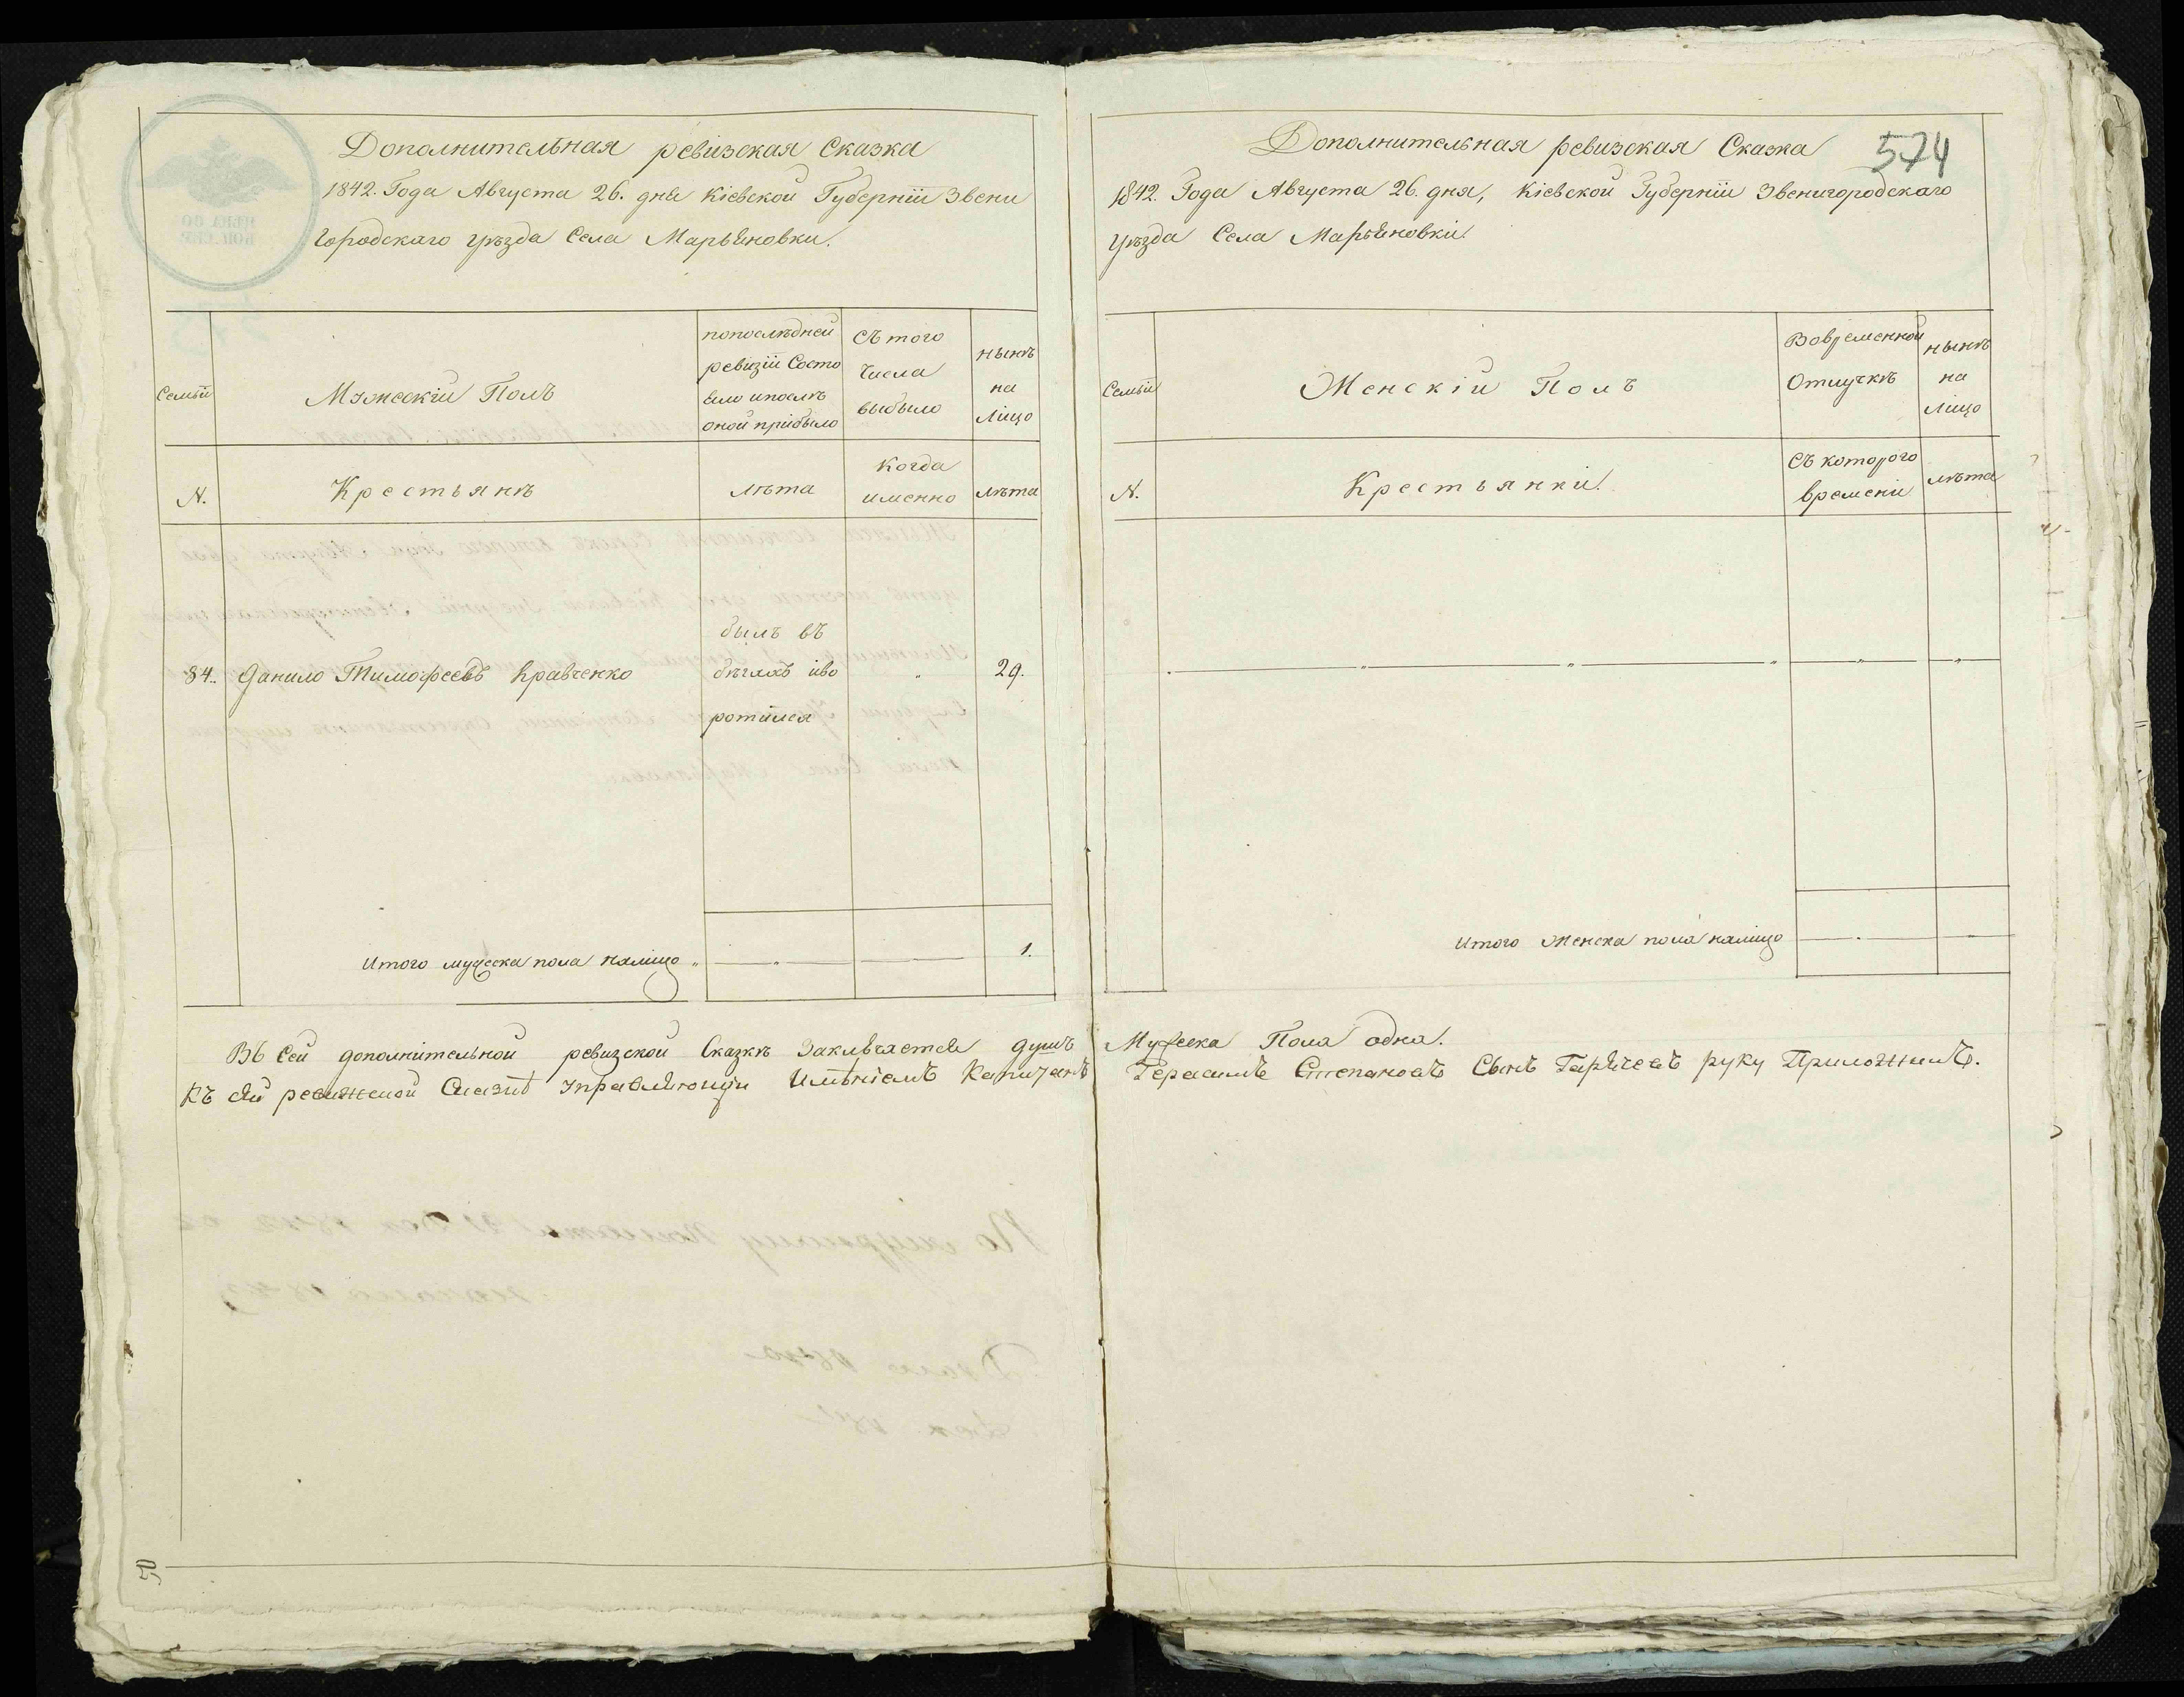 Дополнительная ревизская Сказка
1842. Года Августа 26. дня Кіевской Губерніи Звени
городскаго уѣзда Села Марьяновки.
Семьи
Мужескій Полъ
попослѣдней
ревизіи Состо
яло ипослѣ
оной прибыло
Съ того
числа
выбыло
нынѣ
на
лицо
N.
Крестьянѣ
лѣта
когда
именно
лѣта
84. Данило Тимофеевъ Кравченко
былъ въ
бѣгахъ иво
ротился
29.
Итого мужеска пола налицо
1.
Въ сей дополнительной ревизской Сказкѣ Заключается душъ
Къ сей ревижской Сказке управляющи Имѣніемъ Капитанъ
50
Дополнительная ревизская Сказка
574
1842. Года Августа 26. дня, Кіевской Губерніи Звенигородскаго
уѣзда Села Марьяновки.
Семьи
Женскій Полъ
Вовременной
Отлучкѣ
нынѣ
на
лицо
N.
Крестьянки.
Съ которого
времени
лѣта
Итого женска пола налицо
Мужеска Пола одна.
Герасимъ Степановъ Сынъ руку Приложилъ.